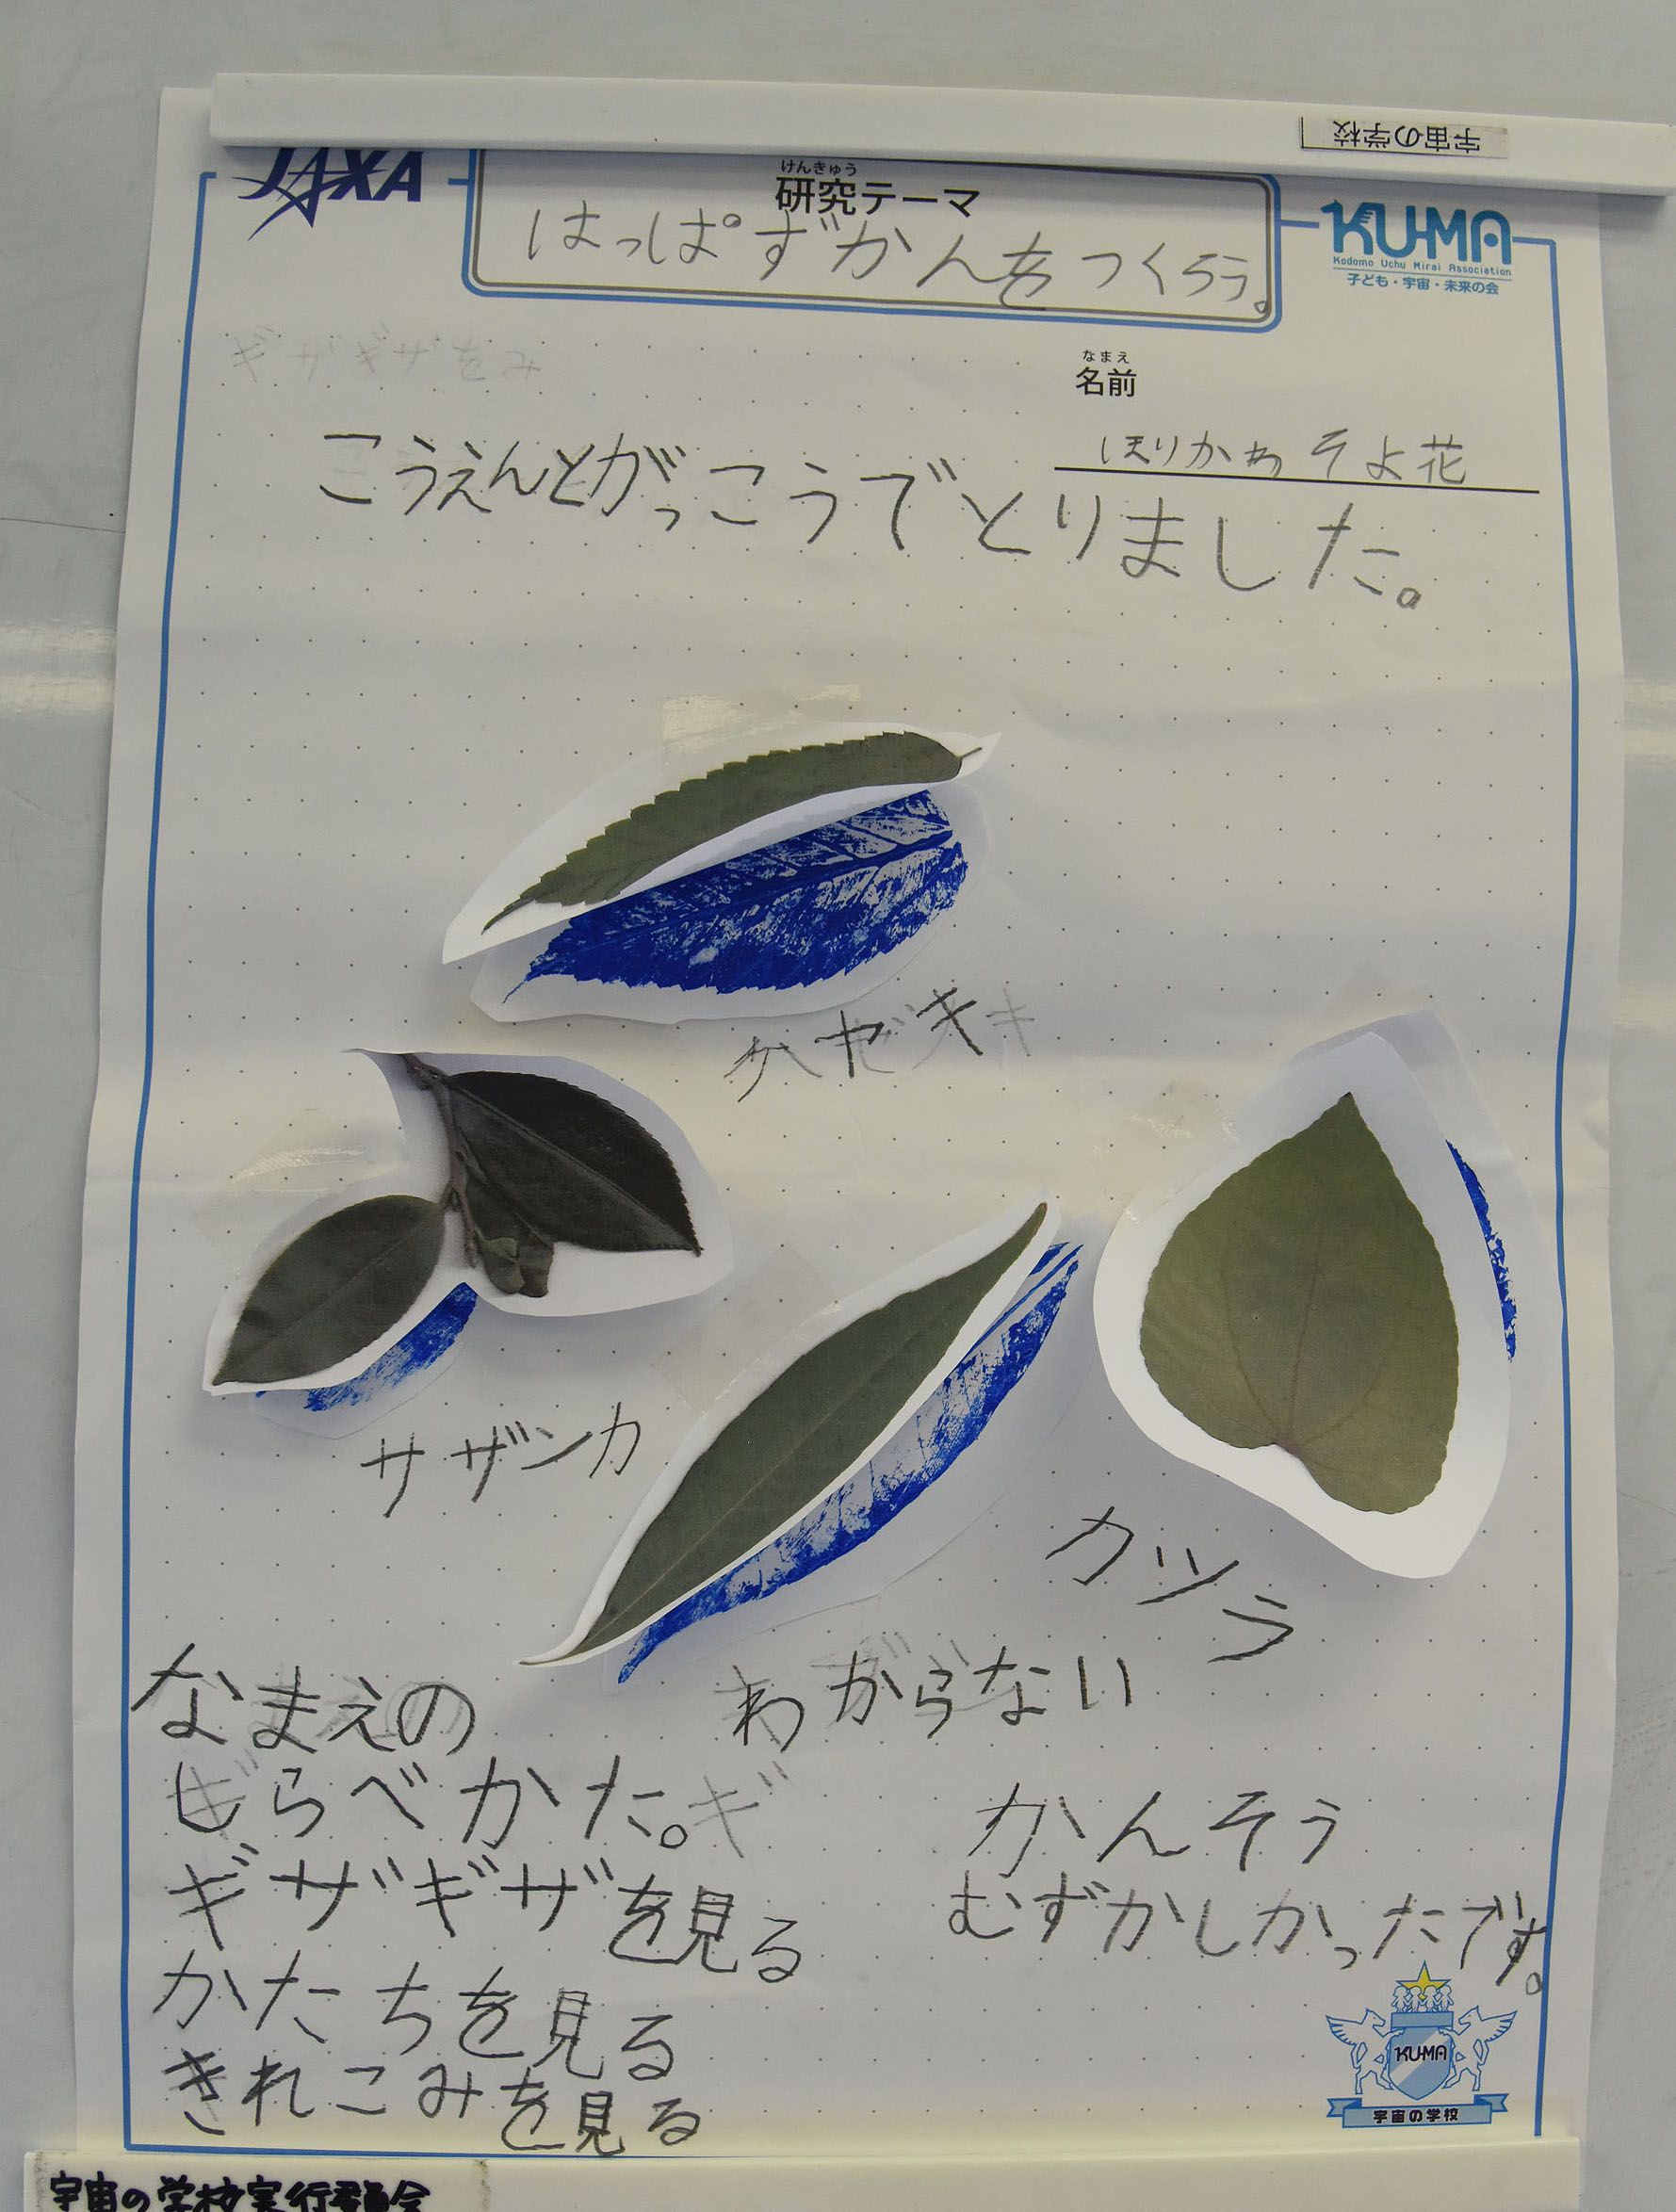 宇宙の学校
JAXA
けんきゅう
研究テーマ
はっぱずかんをつくろう。
KU-MA
Kodomo Uchu Mirai Association
子ども・宇宙・未来の会
ギザギザをみ
なまえ
名前
ほりかわ そよ花
こうえんとがっこうでとりました。
ケヤキ
サザンカ
カツラ
わからない
なまえの
しらべかた。
ギザギザを見る
かたちを見る
きれこみを見る
かんそう
むずかしかったです。
KU-MA
宇宙の学校
宇宙の学校実行委員会